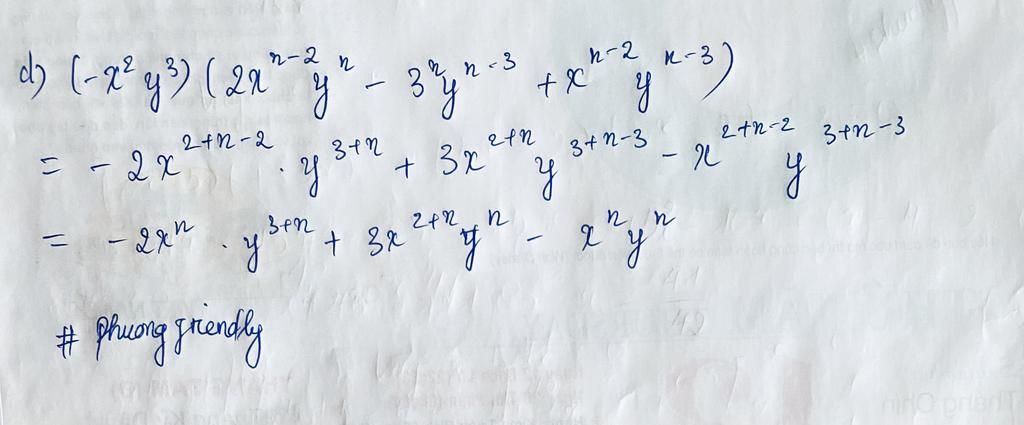 d) (-x² y³) (2xⁿ⁻² yⁿ - 3ⁿ yⁿ⁻³ + xⁿ⁻² yⁿ⁻³)
= - 2x²⁺ⁿ⁻² . y³⁺ⁿ + 3x²⁺ⁿ y³⁺ⁿ⁻³ - x²⁺ⁿ⁻² y³⁺ⁿ⁻³
= - 2xⁿ . y³⁺ⁿ + 3x²⁺ⁿ yⁿ - xⁿ yⁿ
# phuong friendly